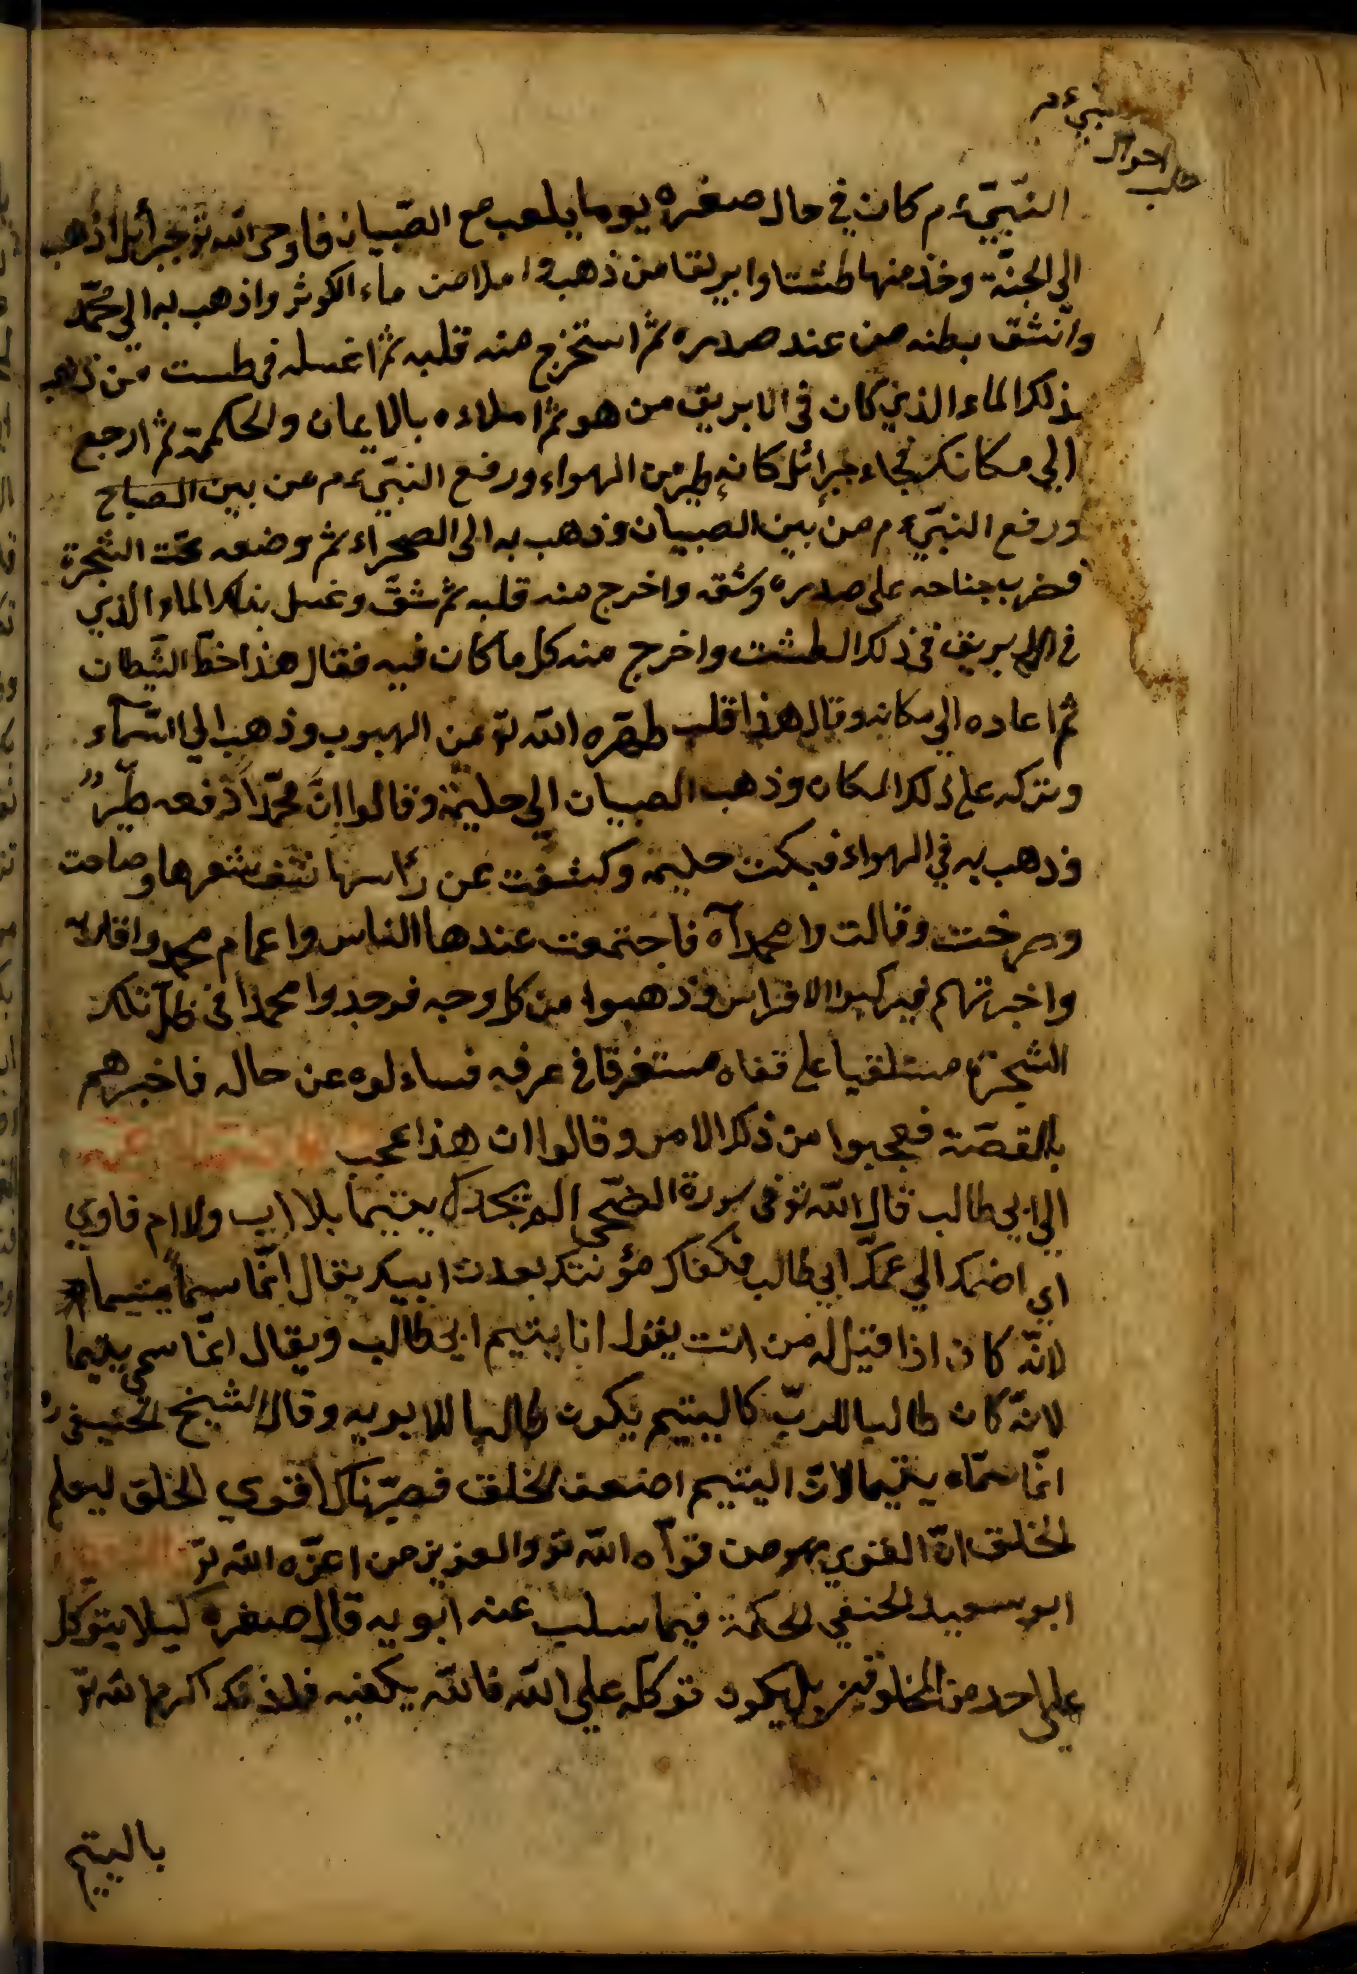 النبي ء م
احوال
قلب
النّبيّ ء م كان في حال صغره يوما يلعب مع الصّبيان فاوحى الله تو جبرائل اذهب
الى الجنّة وخذ منها طشتا وابريقا من ذهبة املا من ماء الكوثر واذهب به الى محمّد
وانشق بطنه من عند صدره ثم استخرج منه قلبه ثم اغسله في طست من ذهب
بذلك الماء الذي كان في الابريق من هو ثم املاءه بالايمان والحكمة ثم ارجع
الي مكانك فجاء جبرائل كانه طير من الهواء ورفع النبّي ء م من بين الصباح
ورفع النبّي ء م من بين الصبيان وذهب به الى الصحراء ثم وضعه تحت الشجرة
فضرب جناحه على صدره وشقه واخرج منه قلبه ثم شقّ وغسل بذلك الماء الذي
في الابريق في ذلك الطشت واخرج منه كل ما كان فيه فقال هذا خطّ الشّيطان
ثم اعاده الي مكانه وقال هذا قلب طهّره الله تو من الهبوب وذهب الي السّمآء
وتركه على ذلك المكان وذهب الصبيان الي حليمة وقالوا انّ محمّدا رفعه طيّر
وذهب به في الهواء فبكت حليمه وكشفت عن رأسها نتف شعرها وصاحت
وصرخت وقالت وا محمدآه فاجتمعت عندها الناس واعمام محمد واقاربه
واخبرتهم فيركبوا الافراس وذهبوا من كل وجه فوجدوا محمدا في ظل تلك
الشجرة مستلقيا على قفاه مستغرقا في عرقه فساءلوه عن حاله فاخبرهم
بالقصّة فعجبوا من ذلك الامر وقالوا ان هذا عجب
الي ابي طالب قال الله تو في سورة الضّحى الم يجدك يتيما بلا اب ولا ام فاوي
اي اضمك الي عمّك ابي طالب فكفاك مؤنتك بعدت ابيك يقال انّما سمّا يتيما
لانّه كان اذا قيل له من انت يقول انا يتيم ابي طالب ويقال انّما سمي يتيما
لانّه كان طالبا للربّ كاليتيم يكون طالبا للابويه وقال الشيخ الحنيفي ره
انّما سمّاه يتيما لانّ اليتيم اضعف الخلق فصيّرناك اقوي الخلق ليعلم
الخلق انّ القوي هو من قوّآه الله تو والعزيز من اعزّه الله تو
ابو سعيد الحنفي الحكمة فيما سلب عنه ابويه قال صغره كيلا يتوكّل
علي احد من المخلوقين بل يكون توكله علي الله فالله يكفيه فلذلك اكرمه الله تو
باليتيم